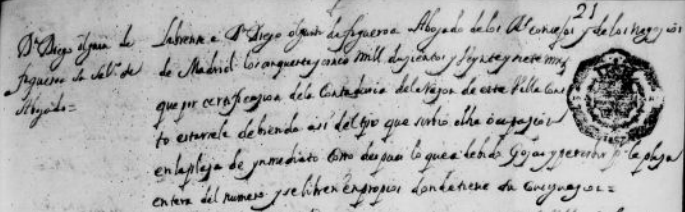 21
Dn Diego olgado de
figueroa su Salo de
Abogado =
Librense a Dn Diego olgado de figueroa Abogado de los Rs consejos y de los negoçios
de Madrid los cinquenta y cinco mill duçientos y Veynte y siete mrs
que por certificaçion de la Contaduria de la Razon de esta Villa Cons
to estarsele debiendo asi del tpo que sirbio dha ocupaçion
en la plaça de ynmediato como despues lo que a debido Goçar y perceuir por la plaça
entera del numero y se libren en propios donde tiene su Consignaçion =